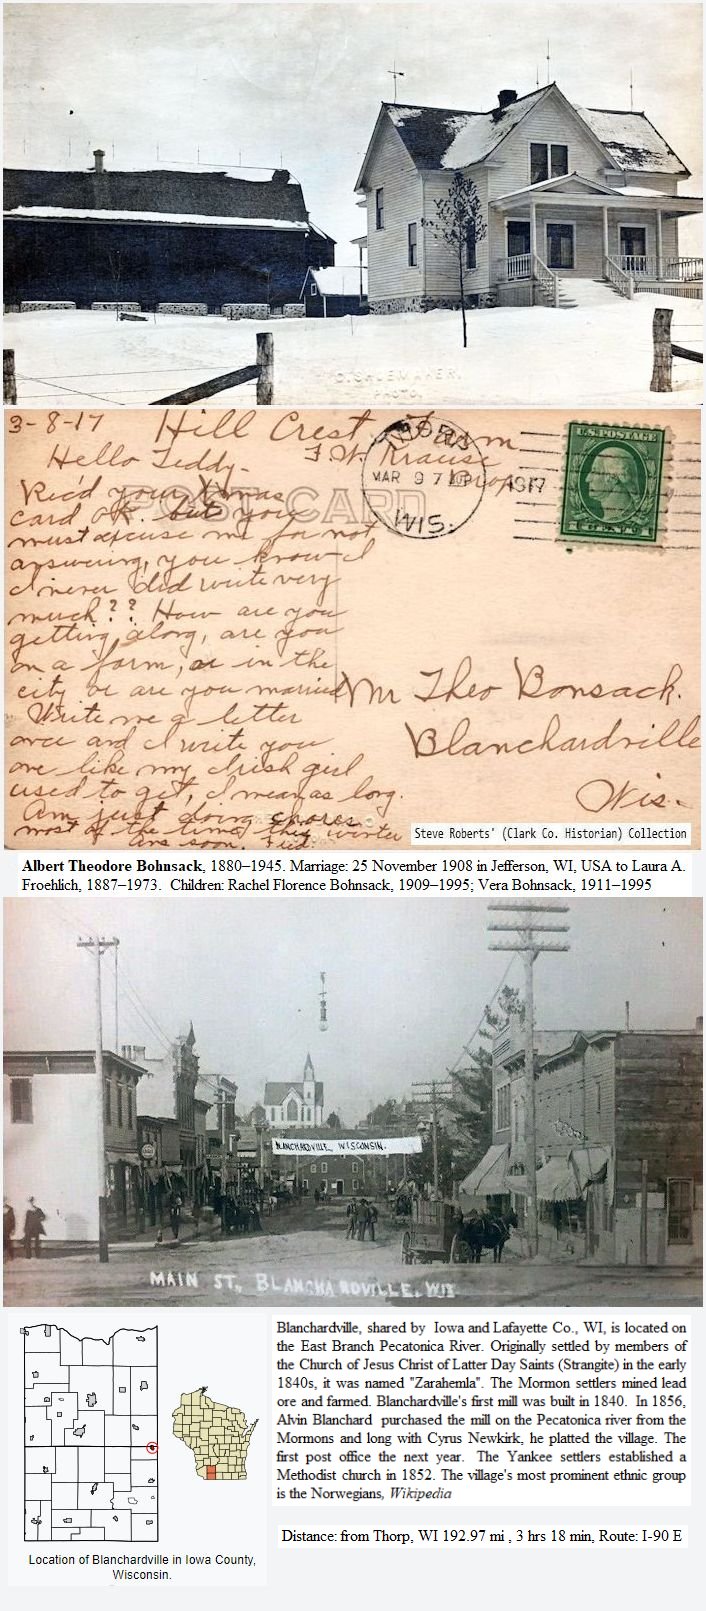 C. SHUEMAKER.
PHOTO.
3-8-17 Hill Crest Farm
F. W. Krause
Prop.
Hello Teddy-
POST CARD
Rec'd your Xmas
card OK. but you
must excuse me for not
answering, you know I
never did write very
much?? How are you
getting along, are you
on a farm, or in the
city or are you married
Write me a letter
once and I write you
one like my Irish girl
used to get, I mean as long.
Am just doing chores
most of the time this winter
Ans soon. Fred.
THORP
MAR 9 7
1917
WIS.
U.S. POSTAGE
Mr Theo Bonsack.
Blanchardville
Wis.
Steve Roberts' (Clark Co. Historian) Collection
Albert Theodore Bohnsack, 1880–1945. Marriage: 25 November 1908 in Jefferson, WI, USA to Laura A.
Froehlich, 1887–1973. Children: Rachel Florence Bohnsack, 1909–1995; Vera Bohnsack, 1911–1995
BLANCHARDVILLE, WISCONSIN.
MAIN ST., BLANCHARDVILLE. WIS
Location of Blanchardville in Iowa County,
Wisconsin.
Blanchardville, shared by Iowa and Lafayette Co., WI, is located on
the East Branch Pecatonica River. Originally settled by members of
the Church of Jesus Christ of Latter Day Saints (Strangite) in the early
1840s, it was named "Zarahemla". The Mormon settlers mined lead
ore and farmed. Blanchardville's first mill was built in 1840. In 1856,
Alvin Blanchard purchased the mill on the Pecatonica river from the
Mormons and long with Cyrus Newkirk, he platted the village. The
first post office the next year. The Yankee settlers established a
Methodist church in 1852. The village's most prominent ethnic group
is the Norwegians, Wikipedia
Distance: from Thorp, WI 192.97 mi , 3 hrs 18 min, Route: I-90 E